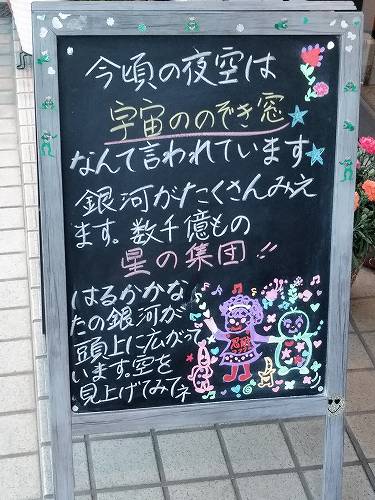 今頃の夜空は
宇宙ののぞき窓
なんて言われています
銀河がたくさんみえ
ます。数千億もの
星の集団!!
はるかかな
たの銀河が
頭上に広がって
います。空を
見上げてみてネ